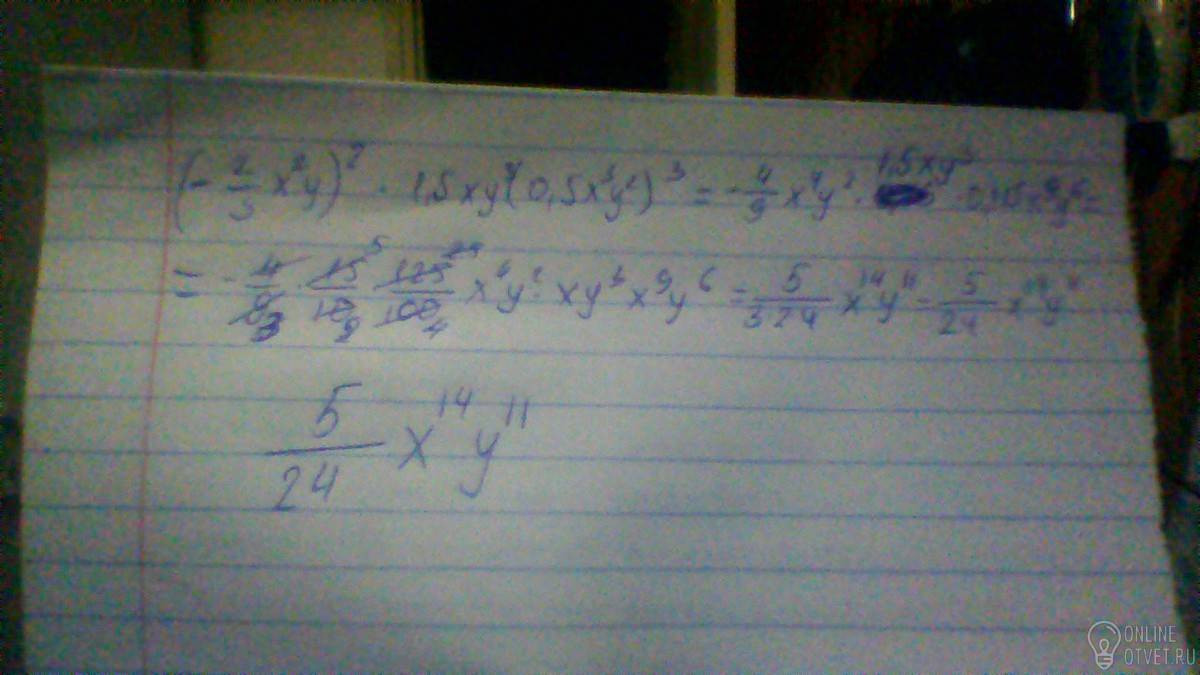 (-2/3 x²y)² · 1,5xy⁴(0,5x³y²)³ = -4/9 x⁴y² · 1,5xy³ · 0,125x⁹y⁶ =
= - 4/9 3 15/10 5 2 125/100 4 x⁴y² · xy³x⁹y⁶ = 5/324 x¹⁴y¹¹ = 5/24 x¹⁴y¹¹
5/24 x¹⁴y¹¹
ONLINE
OTVET.RU